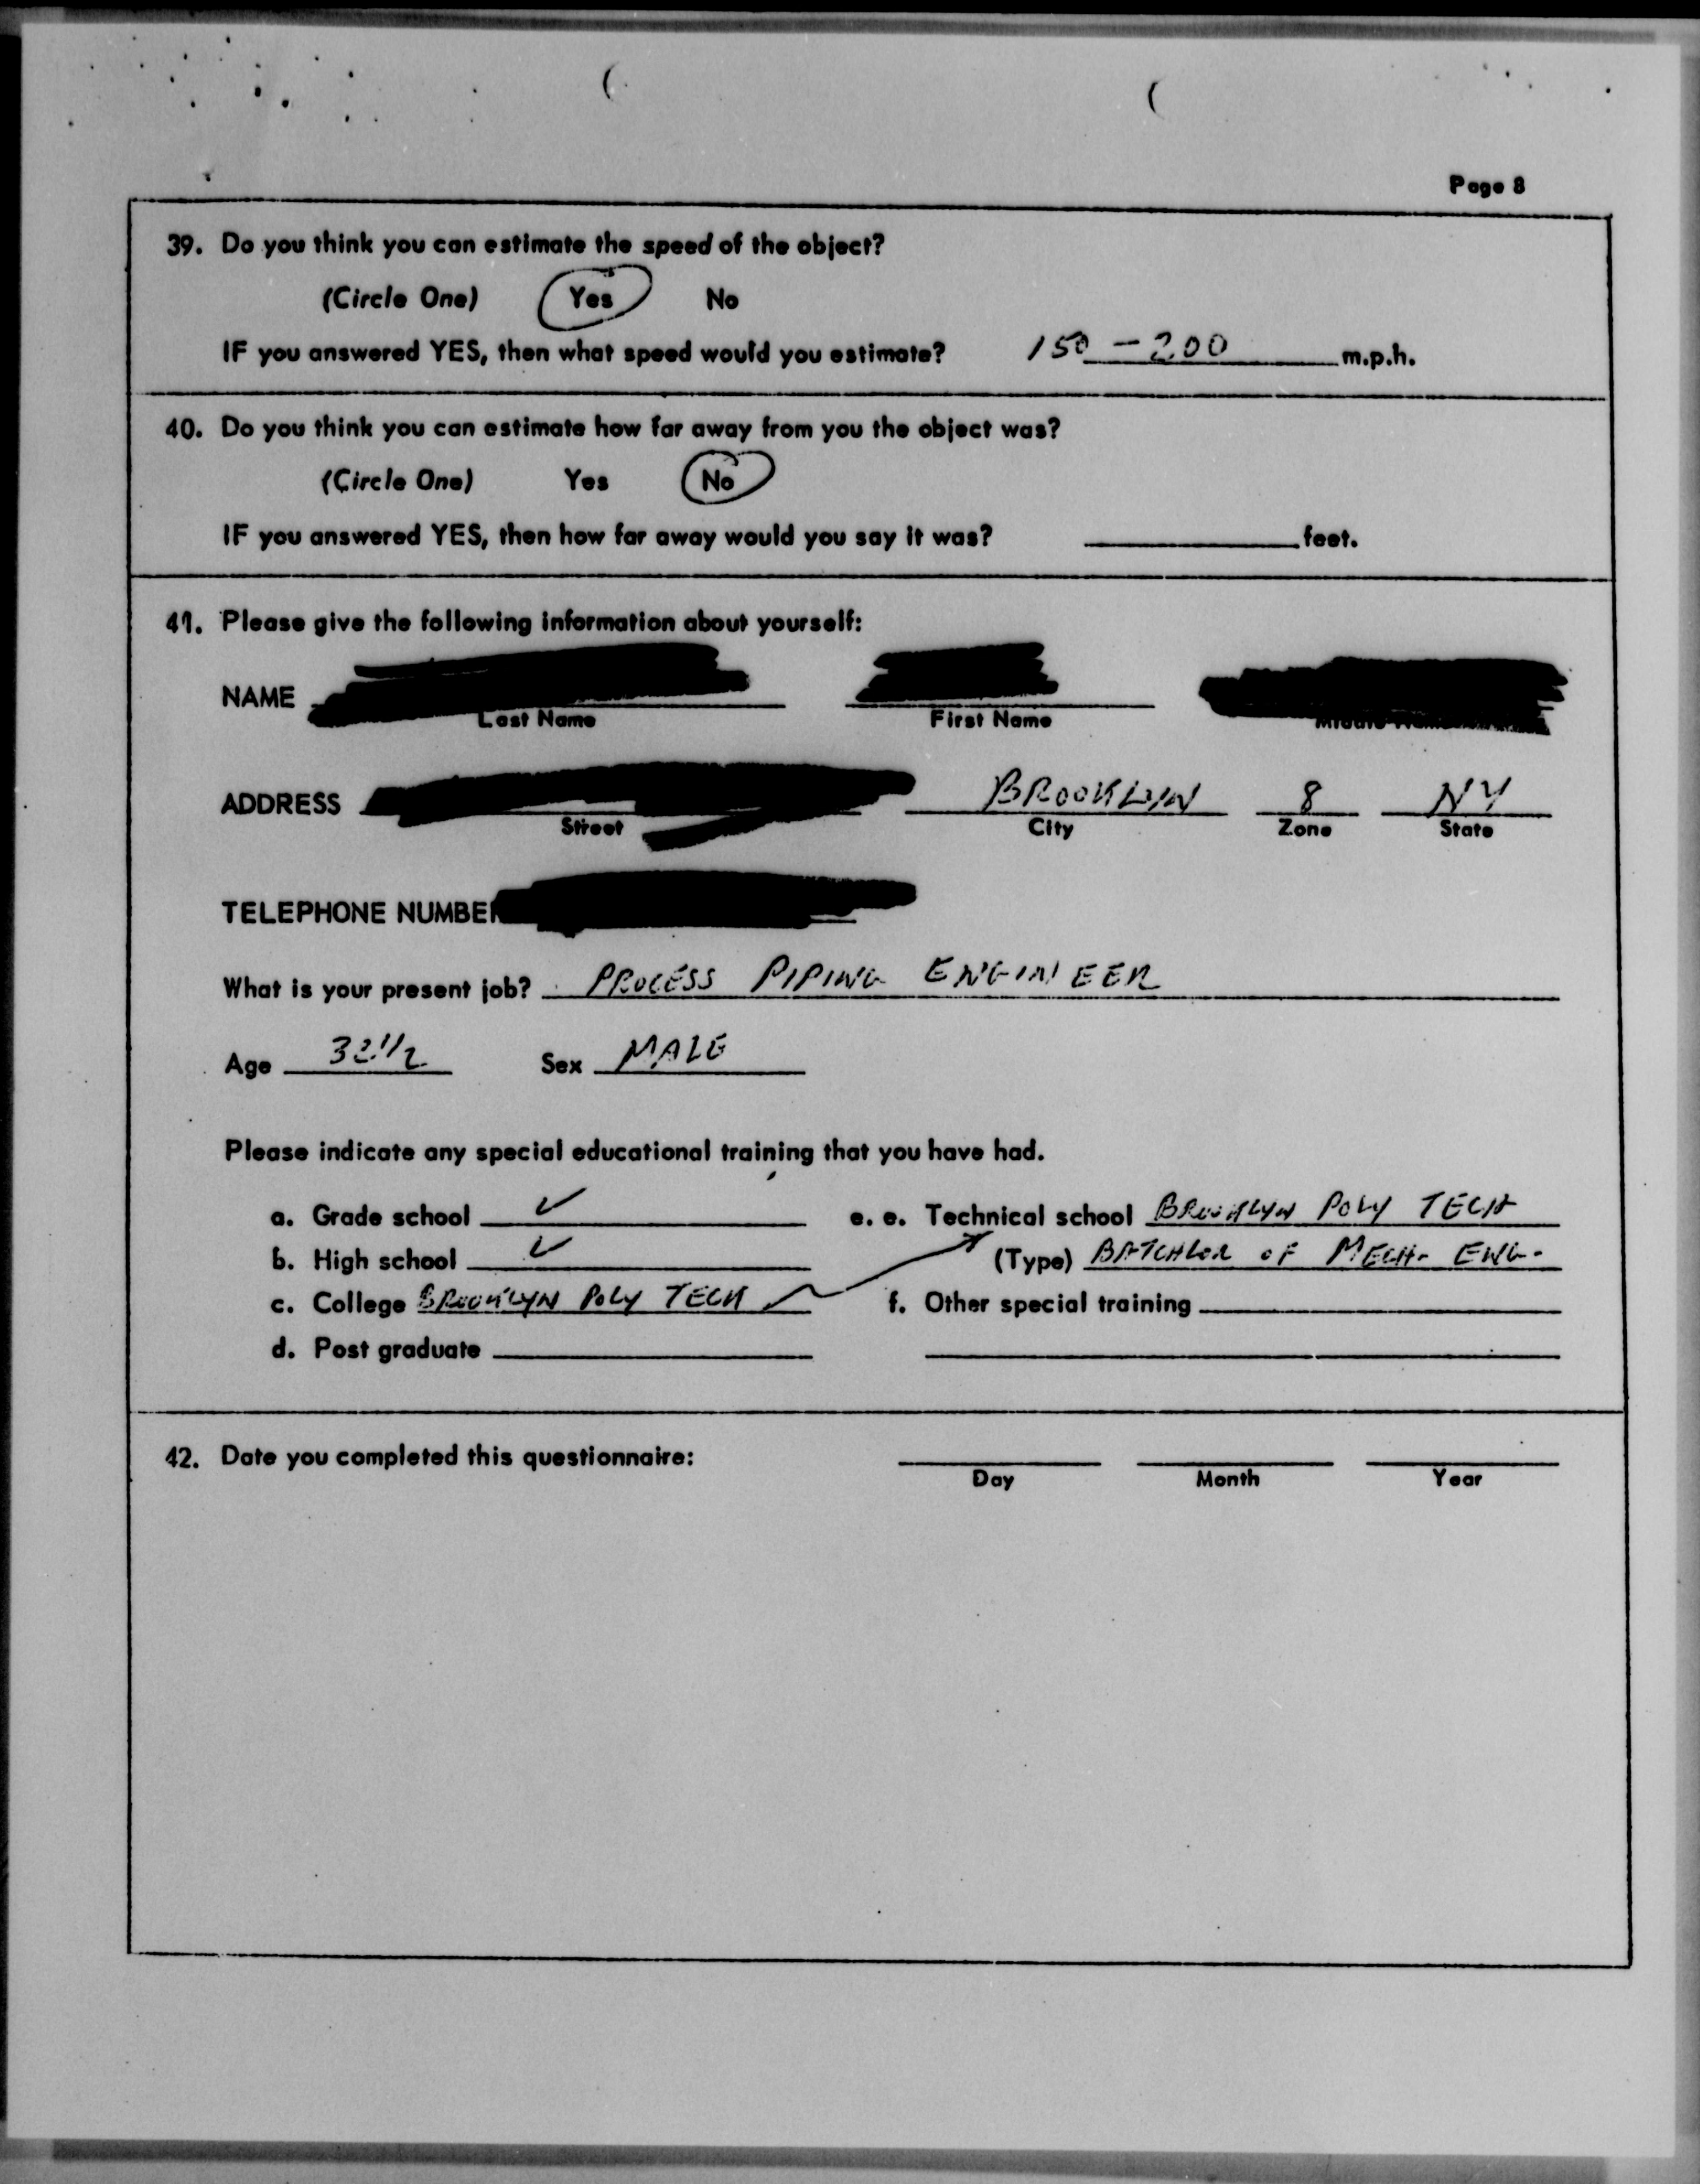 Page 8
39. Do you think you can estimate the speed of the object?
(Circle One) Yes No
IF you answered YES, then what speed would you estimate? 150 - 200 m.p.h.
40. Do you think you can estimate how far away from you the object was?
(Circle One) Yes No
IF you answered YES, then how far away would you say it was? feet.
41. Please give the following information about yourself:
NAME
Last Name First Name
ADDRESS BROOKLYN 8 NY
Street City Zone State
TELEPHONE NUMBER
What is your present job? PROCESS PIPING ENGINEER
Age 32 1/2 Sex MALE
Please indicate any special educational training that you have had.
a. Grade school ✓ e. e. Technical school BROOKLYN POLY TECH
b. High school ✓ (Type) BATCHLOR OF MECH. ENG.
c. College BROOKLYN POLY TECH f. Other special training
d. Post graduate
42. Date you completed this questionnaire:
Day Month Year